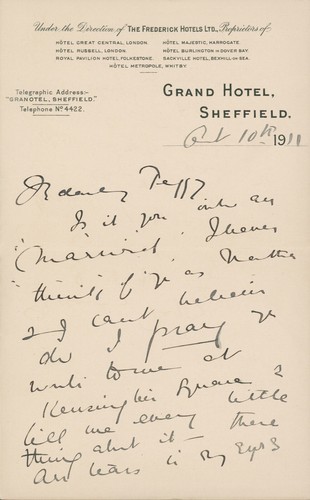 Under the Direction of THE FREDERICK HOTELS LTD., Proprietors of
HÔTEL GREAT CENTRAL, LONDON. HÔTEL MAJESTIC, HARROGATE.
HÔTEL RUSSELL, LONDON. HÔTEL BURLINGTON, DOVER BAY.
ROYAL PAVILION HOTEL, FOLKESTONE. SACKVILLE HOTEL, BEXHILL-ON-SEA.
HÔTEL METROPOLE, WHITBY
Telegraphic Address:-
"GRANOTEL, SHEFFIELD."
Telephone No 4422.
GRAND HOTEL,
SHEFFIELD.
Oct 10th 1911
Peggy
Is it you
"Married. I have
"think of you as
& I can't believe
do I pray you
write to me at
Kensington Square &
tell me every little
thing about it — there
are tears in my eyes